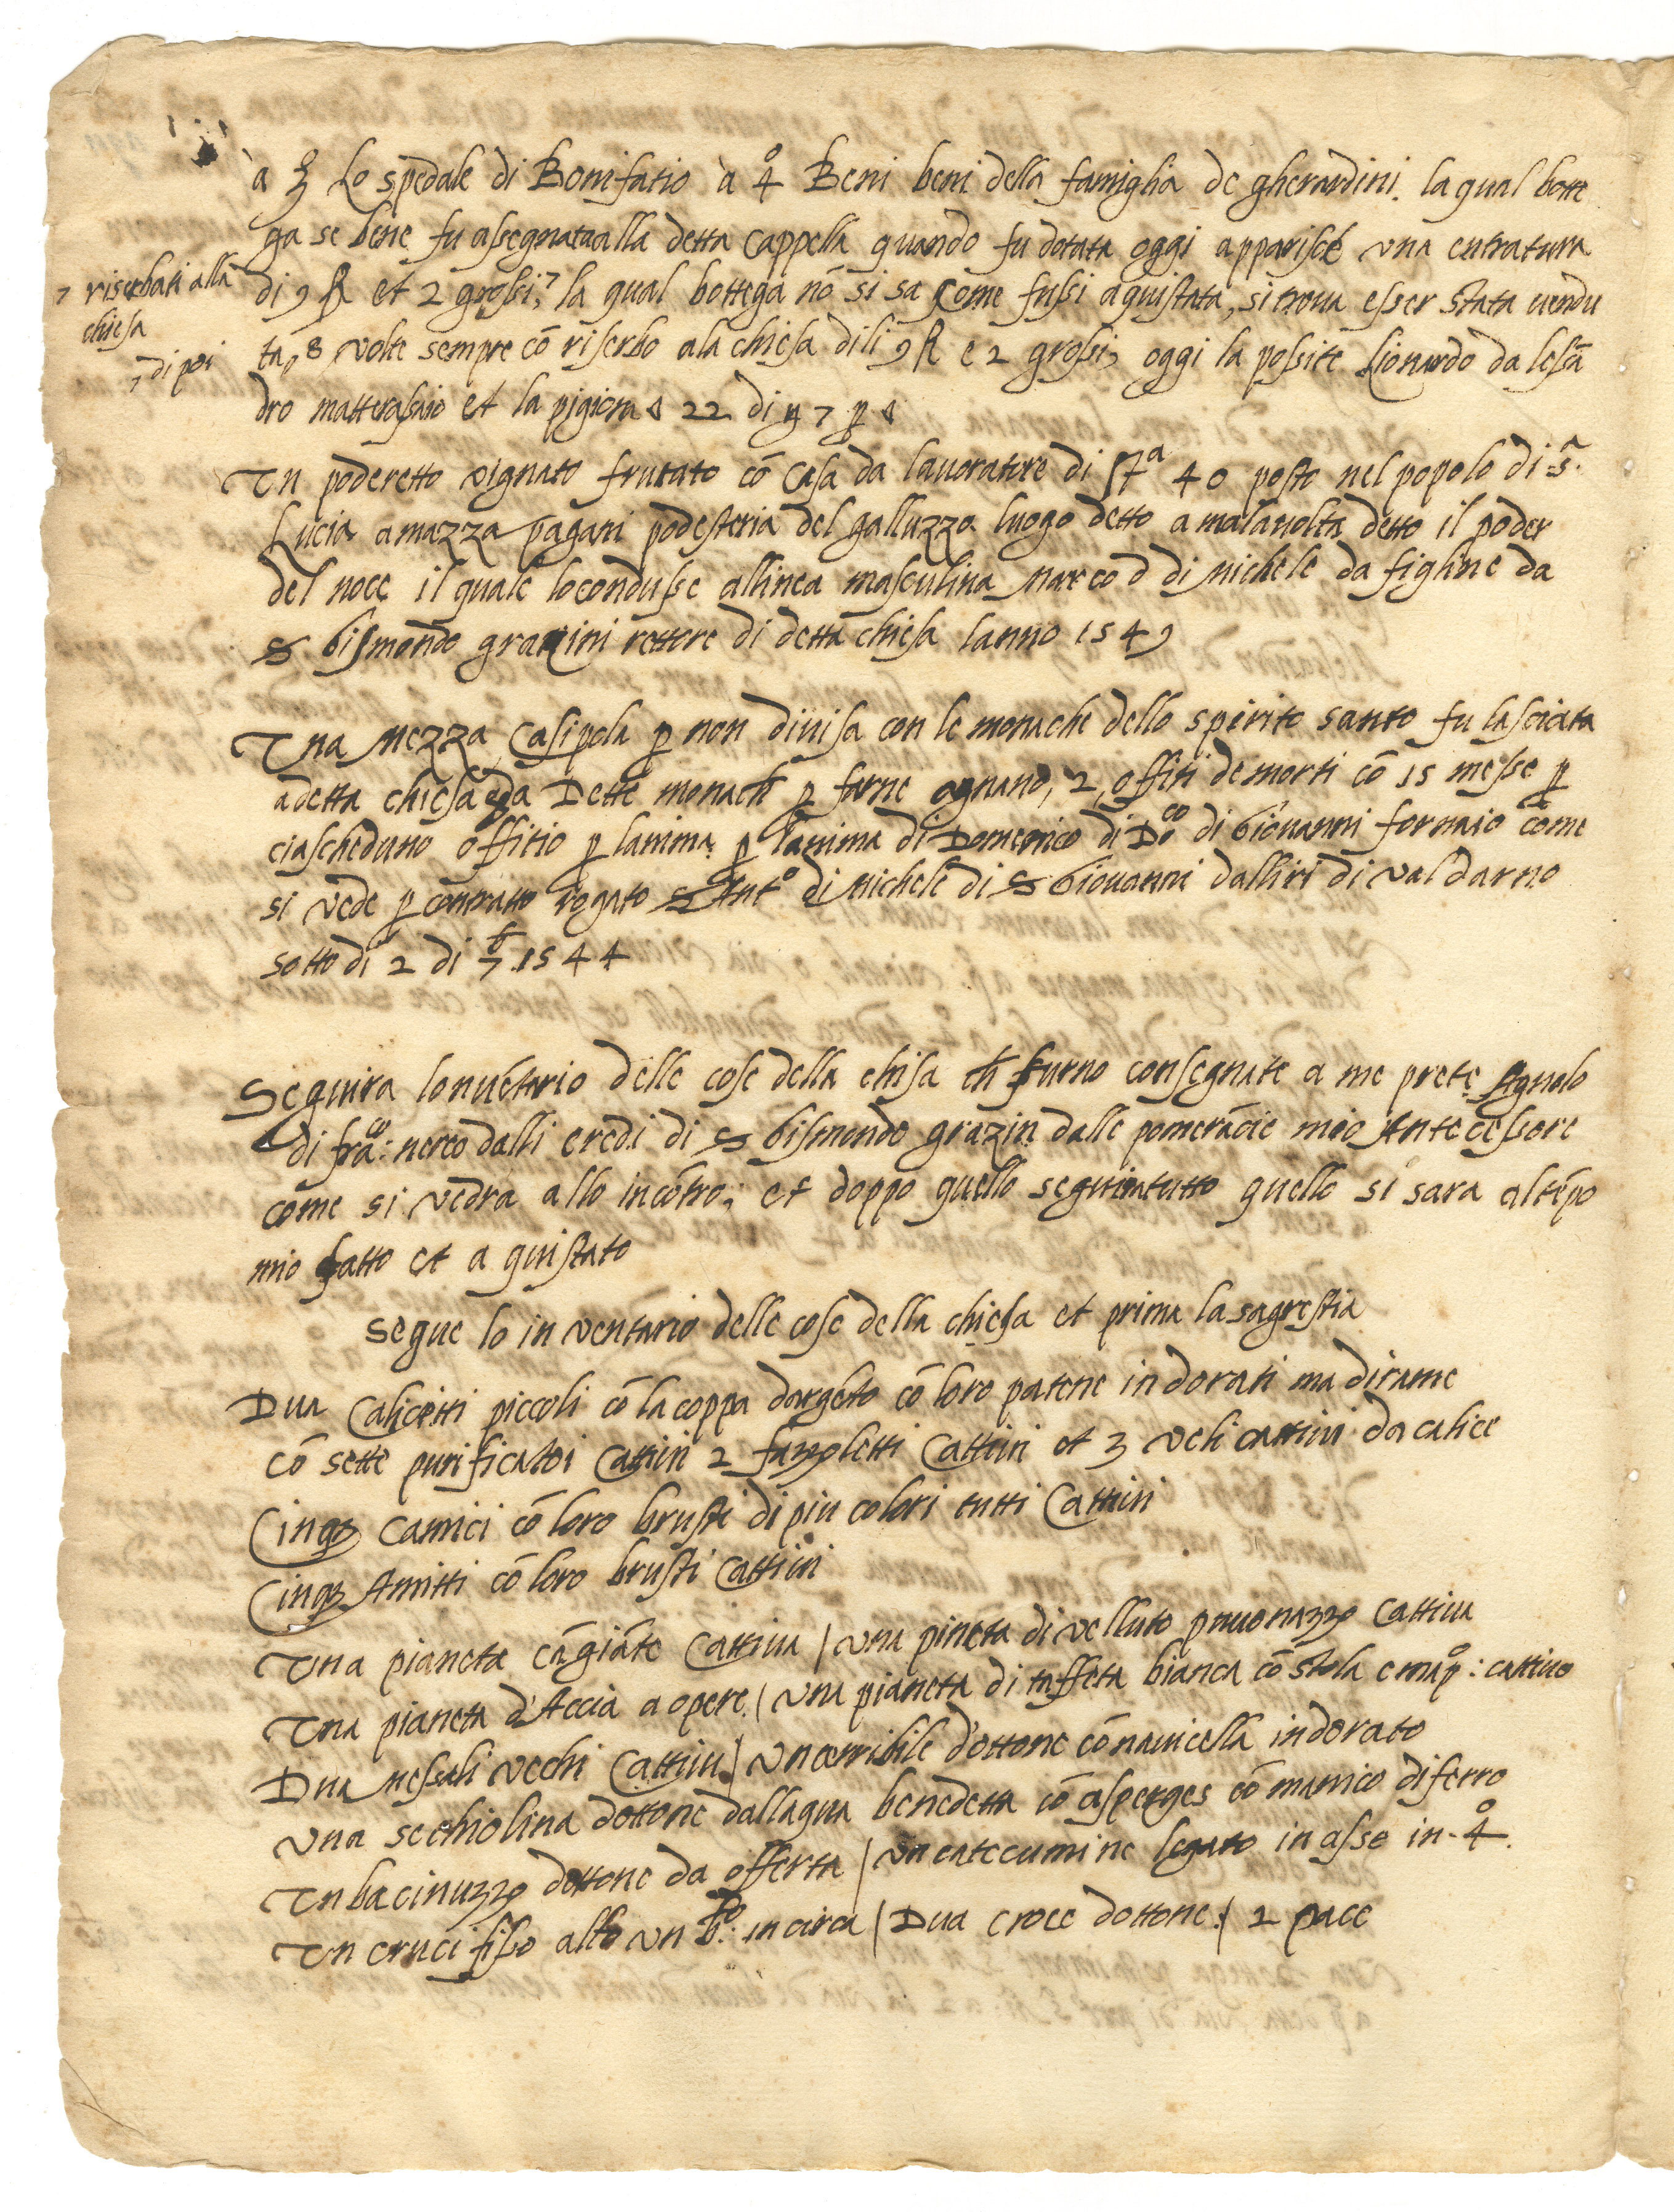 à 3 Lo spedale di Bonifatio à 4º Beni beni della famiglia de gherardini. la qual botte
ga se bene fu assegnata alla detta Cappella quando fu dotata oggi apparisce una entratura
riserbati alla
chiesa
di 9 et 2 grossi, la qual bottega nō si sa Come fussi aquistata, si trova esser stata vendu
, di poi
ta, 8 volte sempre cō riserbo ala chiesa dili 9 e 2 grossi, oggi la possite Lionardo da lesā
dro matterassaio et la pigiona 22 di 7 p
Un poderetto vignato frutato cō Casa da lavoratore di 40 posto nel popolo di .s.
Lucia amazza pagani podesteria del galluzzo luogo detto a malavolta detto il poder
del noce il quale lo condusse allinea masculina Marco d di Michele da fighine da
s gismondo grazini rettore di detta chiesa lanno 1549
Una Mezza Casipola p non divisa con le monache dello spirito santo fu lasciata
adetta chiesa da Dette monach p farne ognano, 2, offiti de morti cō 15 messe p
ciascheduno offitio p lanima p lanima di Domenico di Dº di Giovanni fornaio come
si vede p contratto rogato s Antº di Michele di s Giovanni dalliri di valdarno
sotto di 2 di 1544
Seguira lonvētario delle cose della chisa ch furno consegnate a me prete Agnolo
di frācº: nereo dalli eredi di s Gismondo grazini dalle pomerācie mio Antecessore
come si vedra allo incōtro; et doppo quello seguira tutto quello si sara al tēpo
mio fatto et a quistato
segue lo in ventario delle cose della chiesa et prima la sagrestia
Dua Calicetti piccoli cō la coppa dargēto cō loro patene in dorati ma dirame
cō sette purificatoi Cattivi 2 fazzoletti Cattivi et 3 veli cattivi da calice
Cinqz Camici cō loro brusti di piu colori tutti Cattivi
Cinqz Amitti cō loro brusti Cattivi
Una pianeta cāgiāte Cattiva / una pineta di velluto pauonazzo Cattiva
Una pianeta d'Accia a opere. / una pianeta di taffeta bianca cō stola e map: cattivo
Dua Messali vechi Cattivi / un terribile d'ottone cō navicella indorato
una sechiolina dottone dallaqua benedetta cō asperges cō manico di ferro
Un bacinuzzo dottone da offerta / un catecumine legato in asse in .4º.
Un crucifisso alto un bº: in circa / Dua croce dottone. / 2 pace